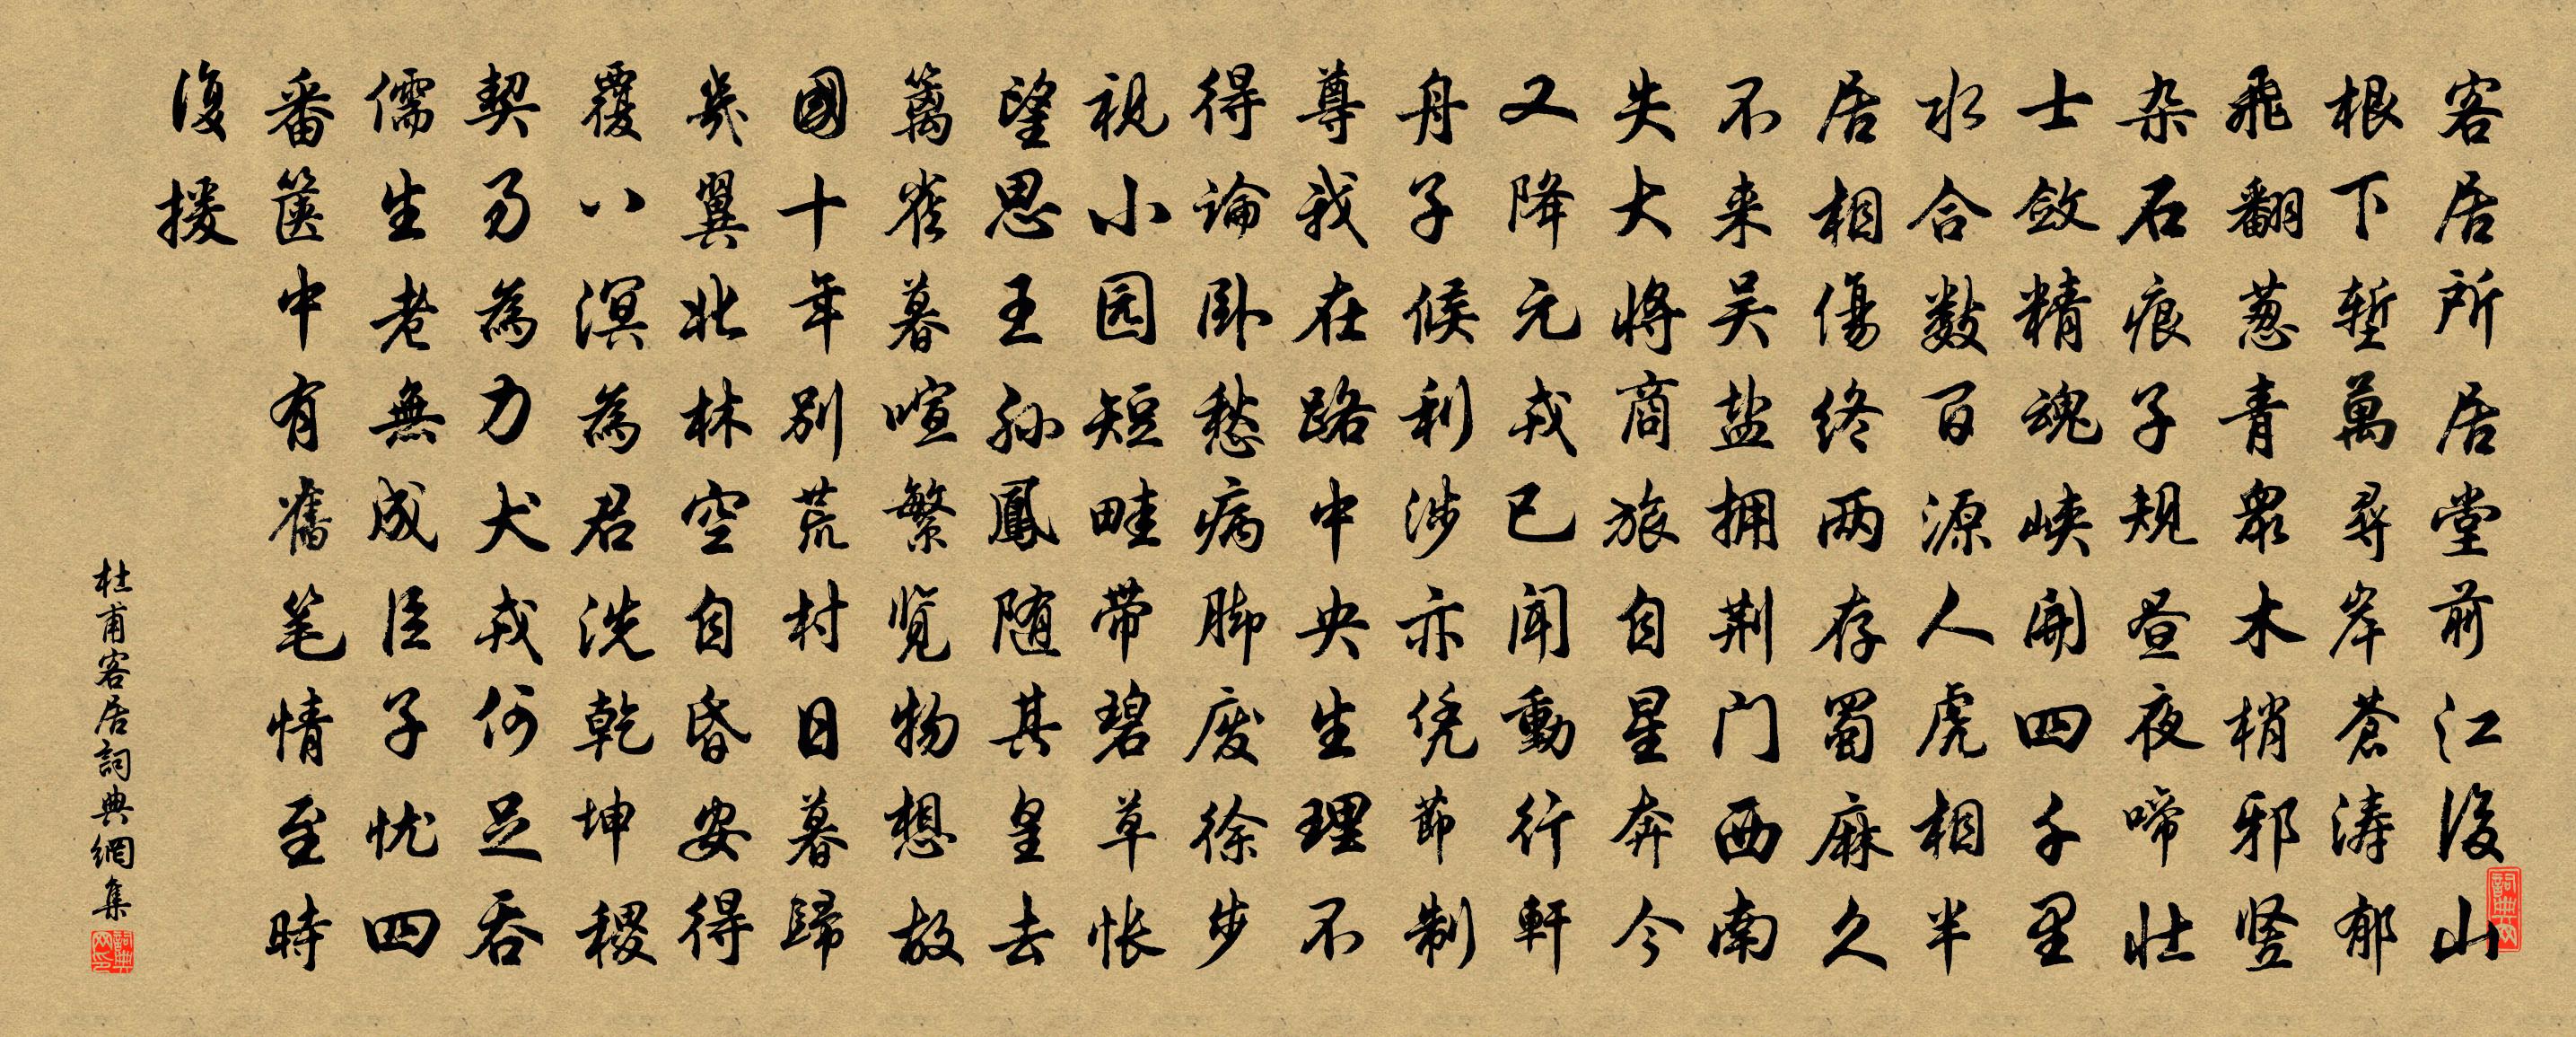 客居所居堂前江後山
根下堑萬尋岸蒼濤郁
飛翻葱青眾木梢邪竖
杂石痕子規昼夜啼壮
士斂精魂峡開四千里
水合數百源人虎相半
居相傷终两存蜀麻久
不来吴盐拥荆门西南
失大將商旅自星奔今
又降元戎已聞動行軒
舟子候利涉亦凭節制
尊我在路中央生理不
得論卧愁病脚废徐步
視小园短畦带碧草怅
望思王孫鳳随其皇去
篱雀暮喧繁览物想故
國十年别荒村日暮歸
幾翼北林空自昏安得
覆八溟為君洗乾坤稷
契易為力犬戎何足吞
儒生老無成臣子忧四
番篋中有舊笔情至時
復援
杜甫客居詞典網集
詞典网
詞典网印